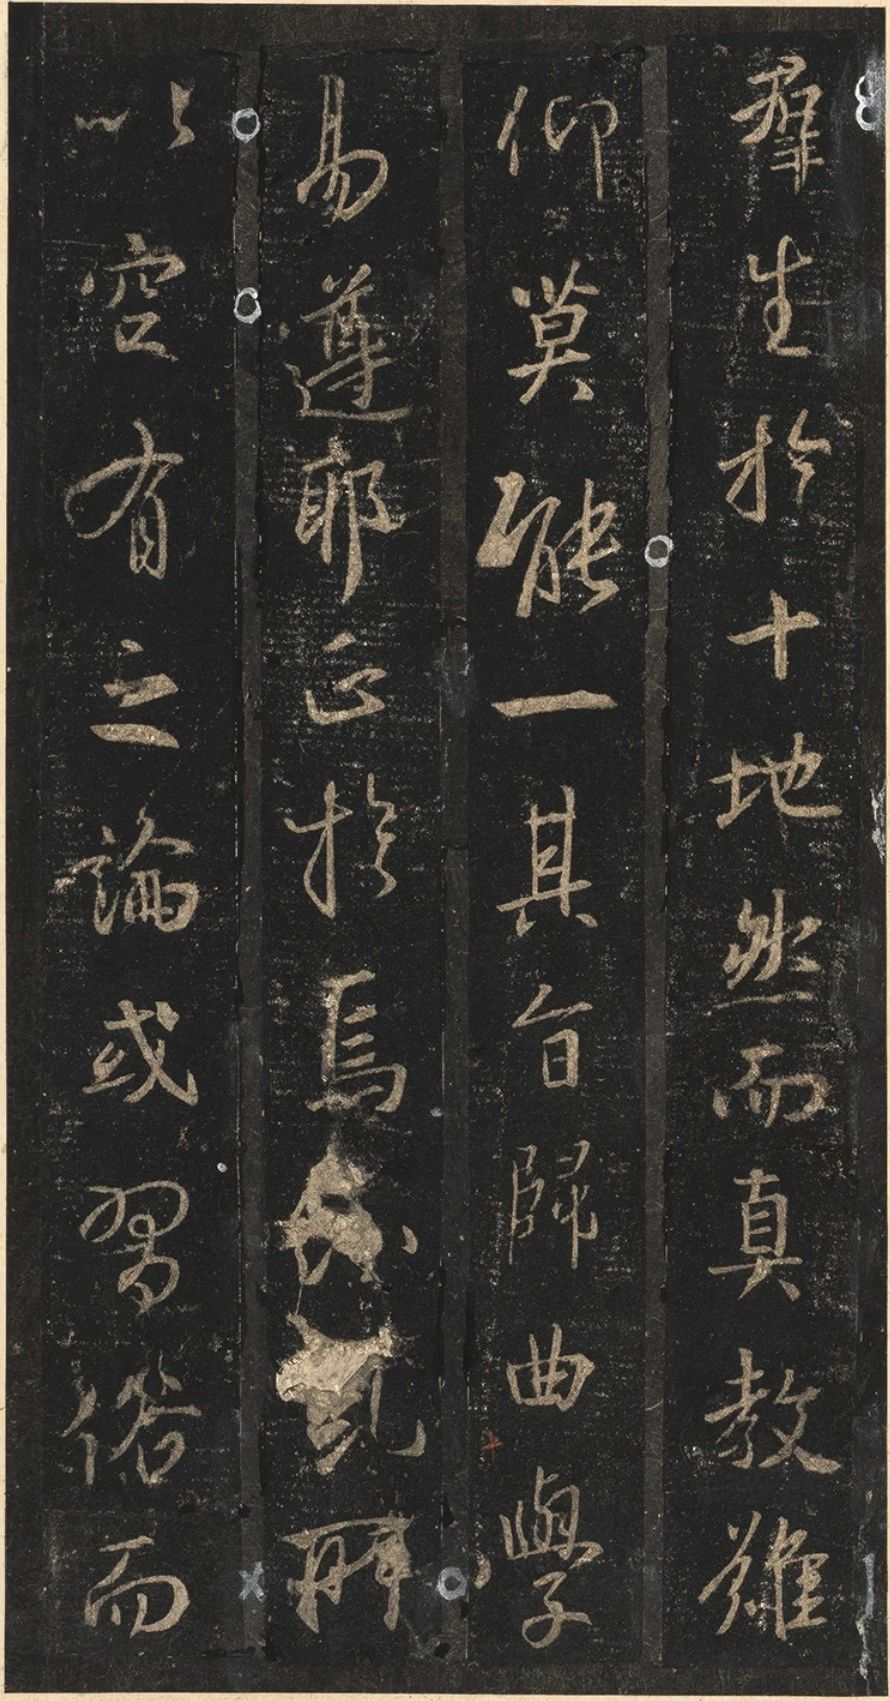 羣生於十地然而真教難
仰莫能一其旨歸曲學
易遵耶正於焉所
以空有之論或習俗而